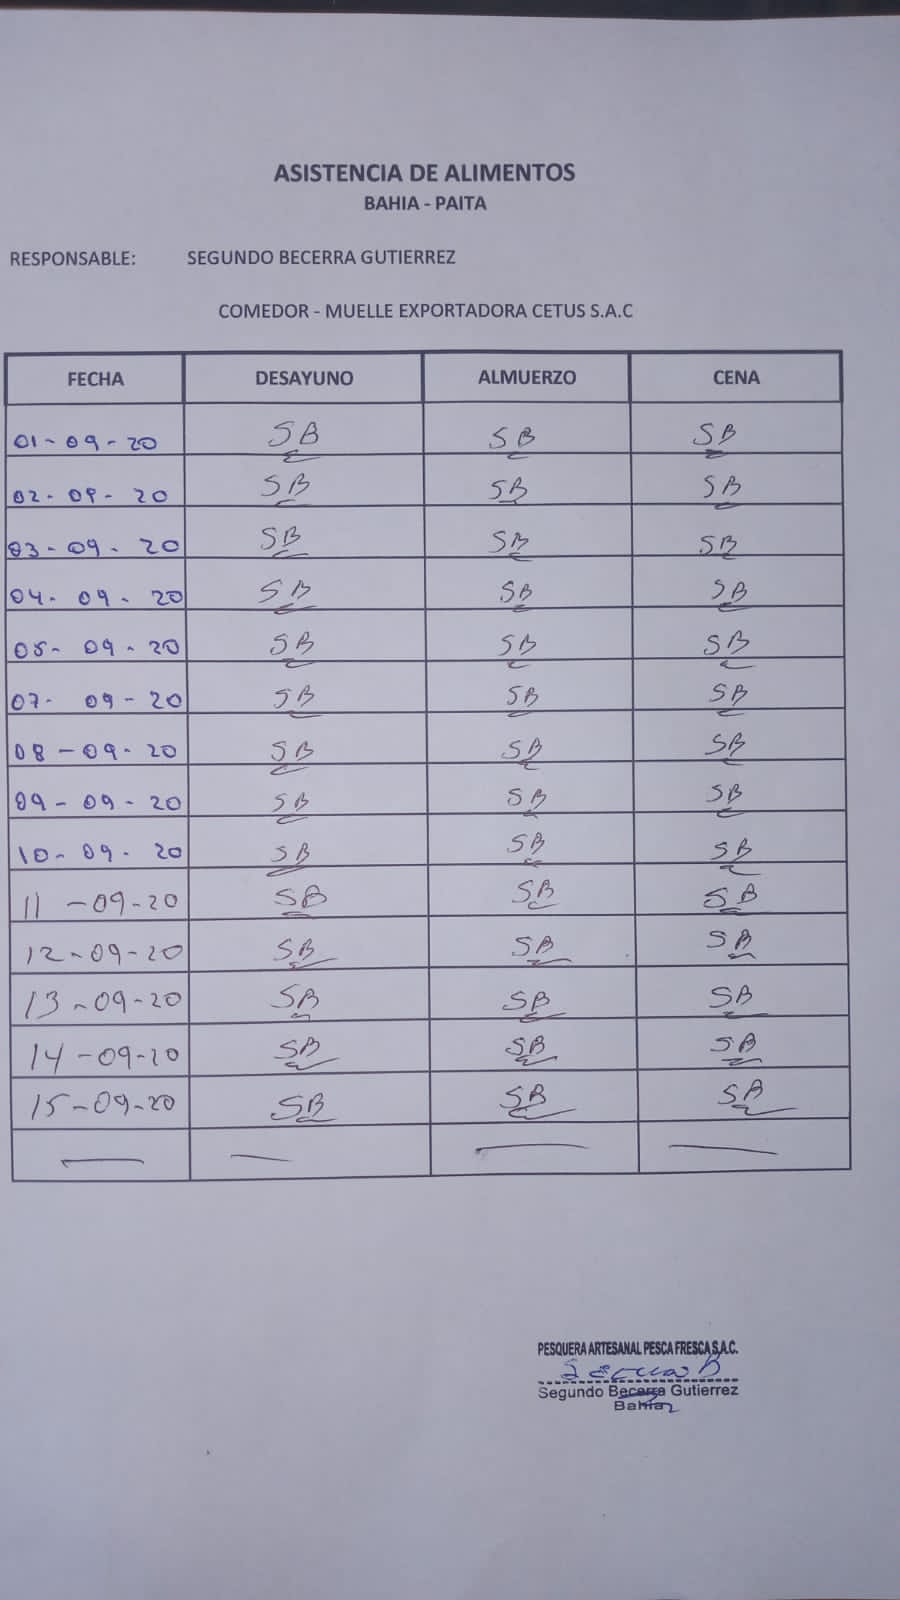 ASISTENCIA DE ALIMENTOS
BAHIA - PAITA
RESPONSABLE: SEGUNDO BECERRA GUTIERREZ
COMEDOR - MUELLE EXPORTADORA CETUS S.A.C
FECHA DESAYUNO ALMUERZO CENA
01-09-20 SB SB SB
02-09-20 SB SB SB
03-09-20 SB SB SB
04-09-20 SB SB SB
05-09-20 SB SB SB
07-09-20 SB SB SB
08-09-20 SB SB SB
09-09-20 SB SB SB
10-09-20 SB SB SB
11-09-20 SB SB SB
12-09-20 SB SB SB
13-09-20 SB SB SB
14-09-20 SB SB SB
15-09-20 SB SB SB
PESQUERA ARTESANAL PESCA FRESCA S.A.C.
Segundo Becerra Gutierrez
Bahia